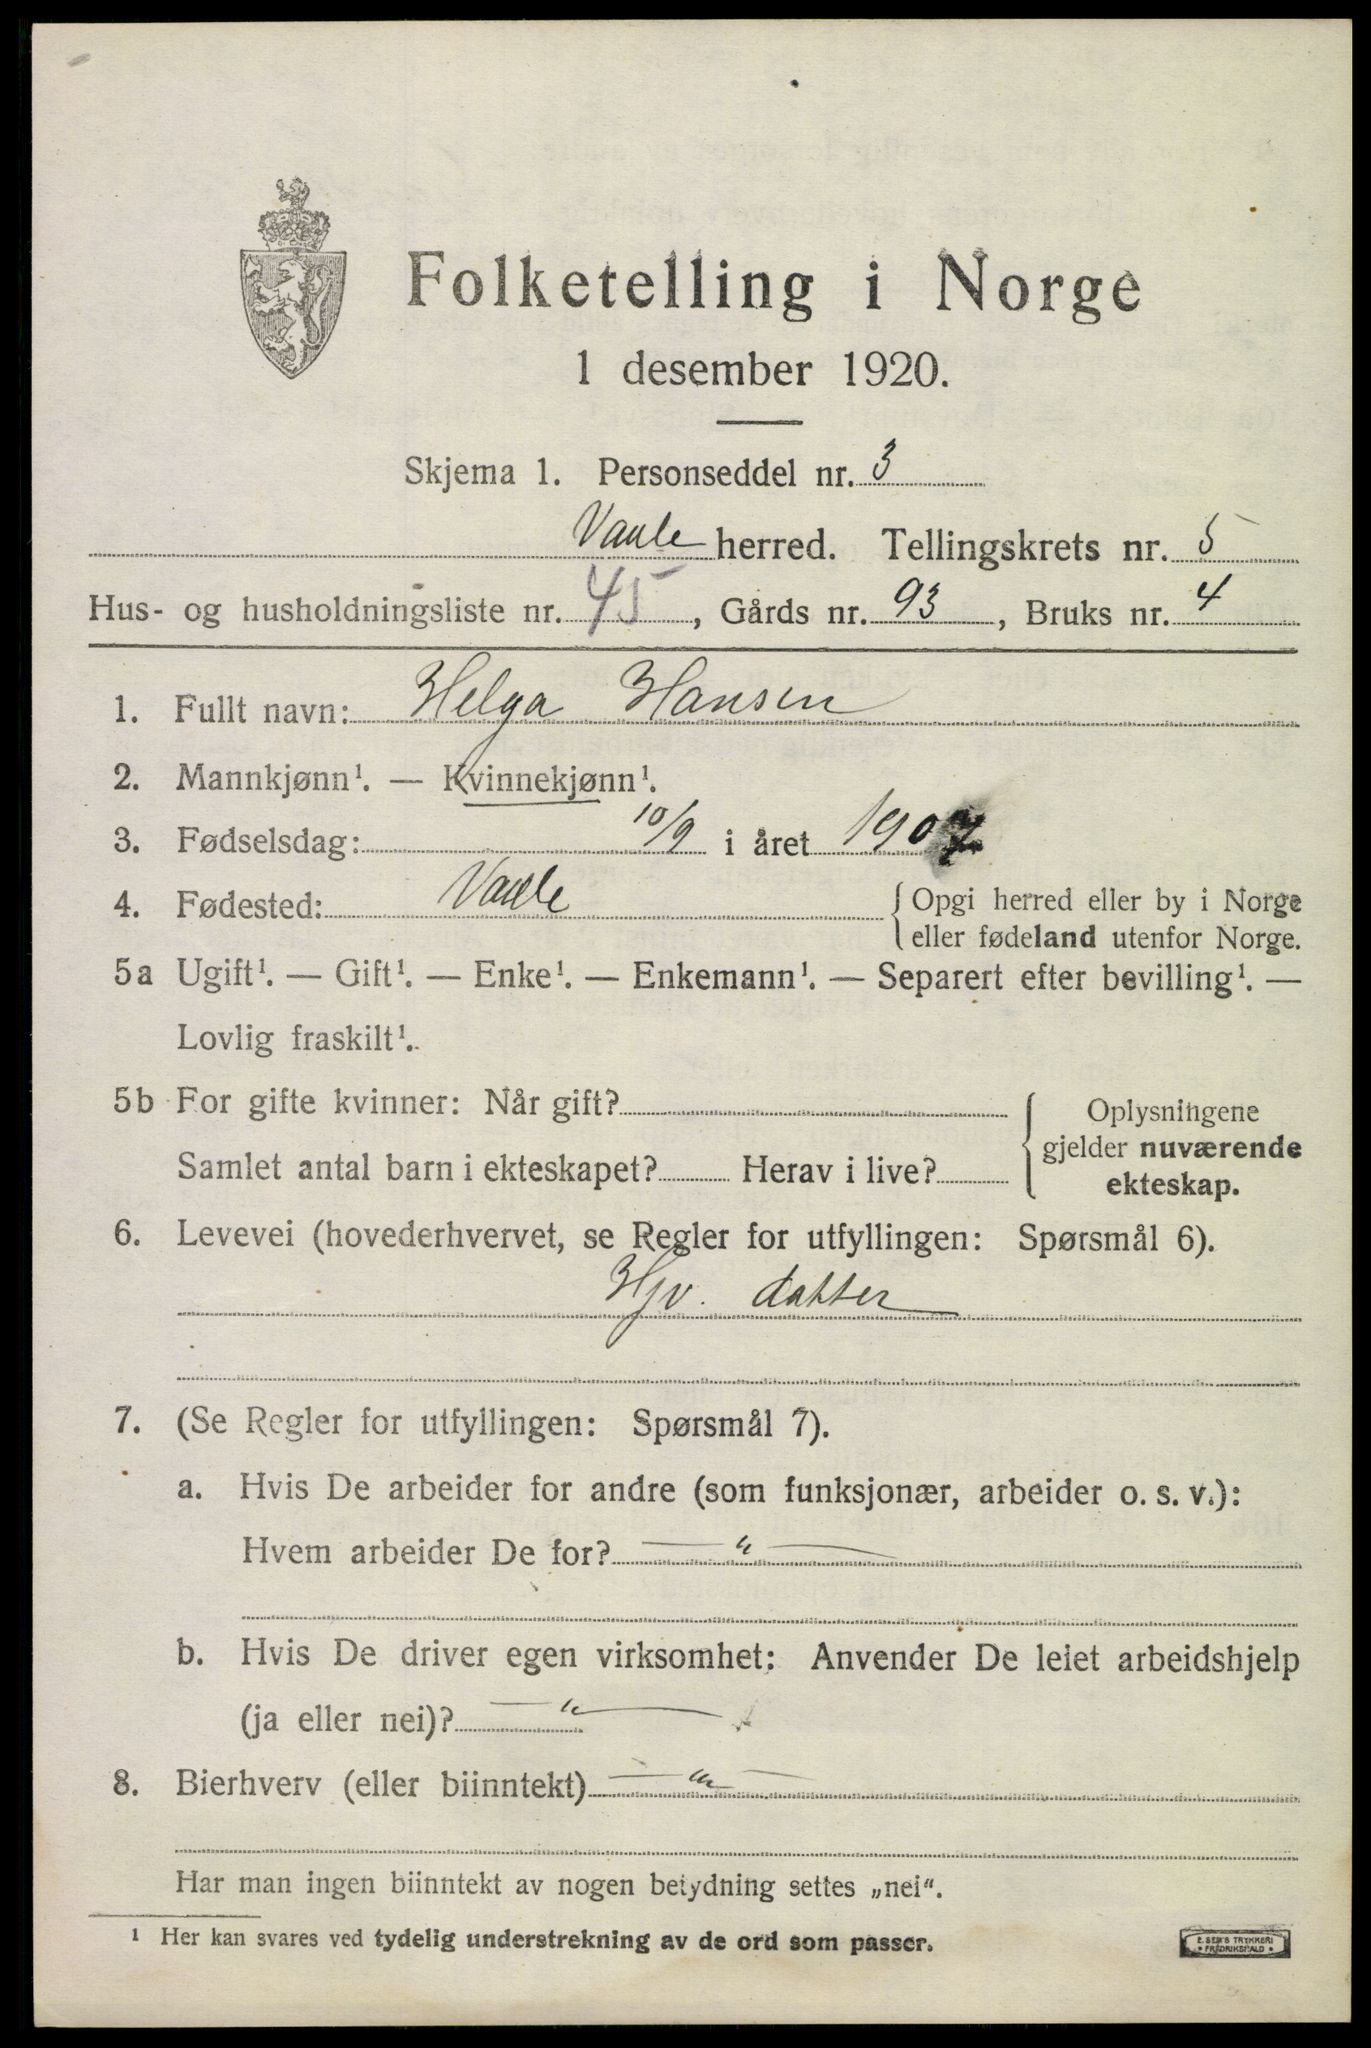 Folketelling i Norge
1 desember 1920.
Skjema 1. Personseddel nr. 3
Vaale herred. Tellingskrets nr. 5
Hus- og husholdningsliste nr. 45, Gårds nr. 93, Bruks nr. 4
1. Fullt navn: Helga Hansen
2. Mannkjønn¹. — Kvinnekjønn¹.
3. Fødselsdag: 10/9 i året 1907
4. Fødested: Vaale { Opgi herred eller by i Norge
eller fødeland utenfor Norge.
5a Ugift¹. — Gift¹. — Enke¹. — Enkemann¹. — Separert efter bevilling¹. —
Lovlig fraskilt¹.
5b For gifte kvinner: Når gift?
Samlet antal barn i ekteskapet? Herav i live?
{ Oplysningene
gjelder nuværende
ekteskap.
6. Levevei (hovederhvervet, se Regler for utfyllingen: Spørsmål 6).
Hjv. datter
7. (Se Regler for utfyllingen: Spørsmål 7).
a. Hvis De arbeider for andre (som funksjonær, arbeider o. s. v.):
Hvem arbeider De for? — " —
b. Hvis De driver egen virksomhet: Anvender De leiet arbeidshjelp
(ja eller nei)? — " —
8. Bierhverv (eller biinntekt) — " —
Har man ingen biinntekt av nogen betydning settes „nei“.
¹ Her kan svares ved tydelig understrekning av de ord som passer.
E. SEM'S TRYKKERI
FREDRIKSHALD